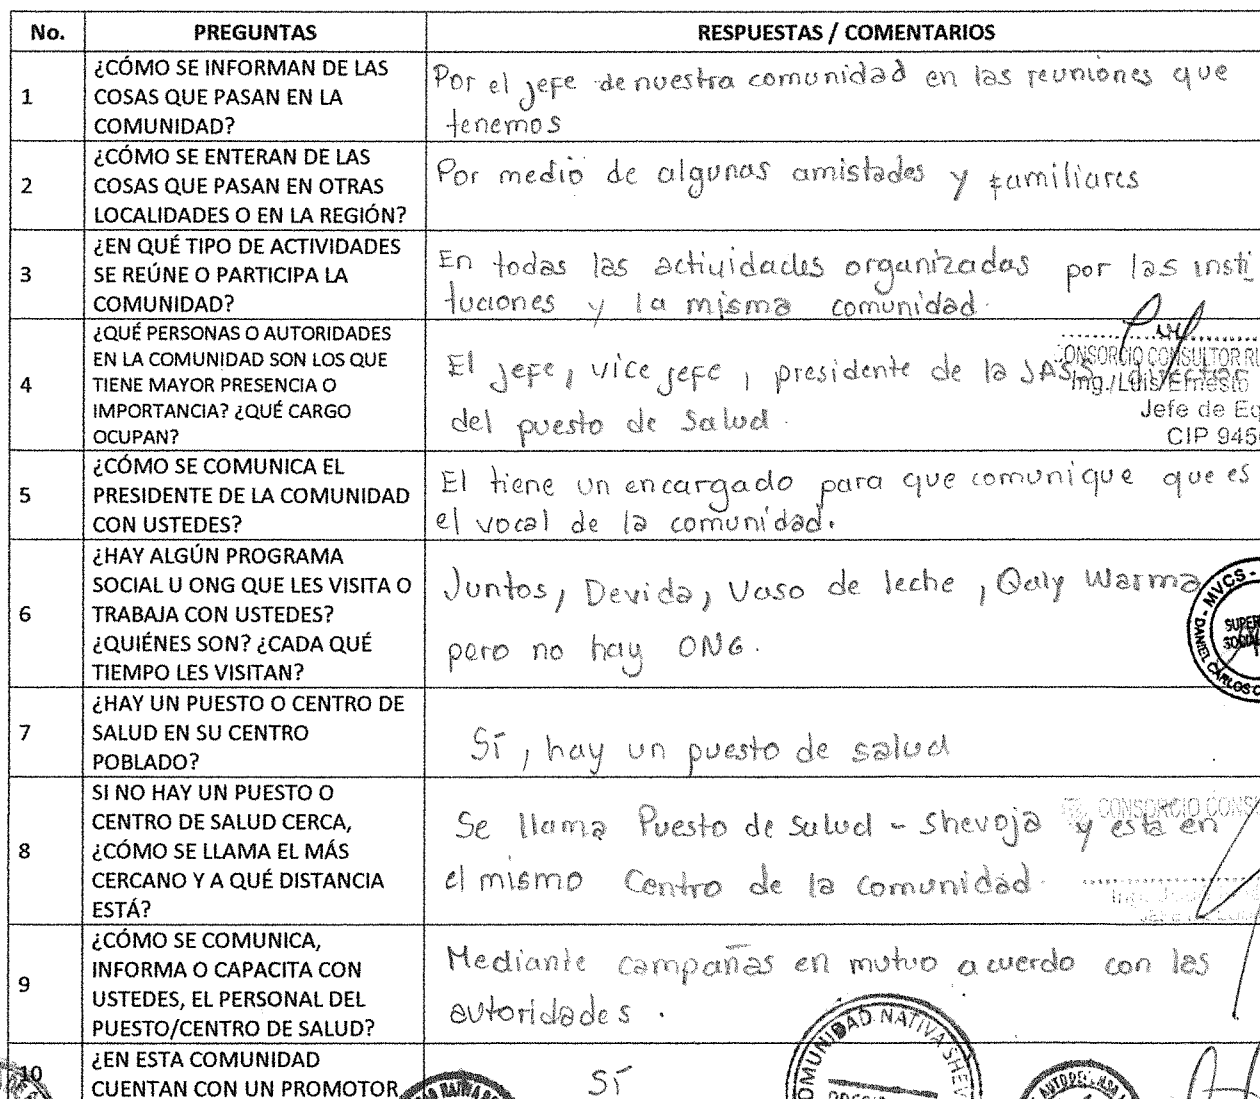 No. PREGUNTAS RESPUESTAS / COMENTARIOS
1
¿CÓMO SE INFORMAN DE LAS
COSAS QUE PASAN EN LA
COMUNIDAD?
Por el jefe de nuestra comunidad en las reuniones que
tenemos
2
¿CÓMO SE ENTERAN DE LAS
COSAS QUE PASAN EN OTRAS
LOCALIDADES O EN LA REGIÓN?
Por medio de algunas amistades y familiares
3
¿EN QUÉ TIPO DE ACTIVIDADES
SE REÚNE O PARTICIPA LA
COMUNIDAD?
En todas las actividades organizadas por las insti
tuciones y la misma comunidad.
4
¿QUÉ PERSONAS O AUTORIDADES
EN LA COMUNIDAD SON LOS QUE
TIENE MAYOR PRESENCIA O
IMPORTANCIA? ¿QUÉ CARGO
OCUPAN?
El jefe, vice jefe, presidente de la JASS, director
del puesto de Salud.
CONSORCIO CONSULTOR
Ing. Luis Ernesto
Jefe de
CIP 945
5
¿CÓMO SE COMUNICA EL
PRESIDENTE DE LA COMUNIDAD
CON USTEDES?
El tiene un encargado para que comunique que es
el vocal de la comunidad.
6
¿HAY ALGÚN PROGRAMA
SOCIAL U ONG QUE LES VISITA O
TRABAJA CON USTEDES?
¿QUIÉNES SON? ¿CADA QUÉ
TIEMPO LES VISITAN?
Juntos, Devida, Vaso de leche, Qaly Warma
pero no hay ONG.
MVCS -
DANIEL CARLOS
7
¿HAY UN PUESTO O CENTRO DE
SALUD EN SU CENTRO
POBLADO?
Sí, hay un puesto de salud
8
SI NO HAY UN PUESTO O
CENTRO DE SALUD CERCA,
¿CÓMO SE LLAMA EL MÁS
CERCANO Y A QUÉ DISTANCIA
ESTÁ?
Se llama Puesto de Salud - Shevoja y esta en
el mismo Centro de la comunidad.
CONSORCIO
9
¿CÓMO SE COMUNICA,
INFORMA O CAPACITA CON
USTEDES, EL PERSONAL DEL
PUESTO/CENTRO DE SALUD?
Mediante campañas en mutuo acuerdo con las
autoridades.
10
¿EN ESTA COMUNIDAD
CUENTAN CON UN PROMOTOR
SÍ
COMUNIDAD NATIVA